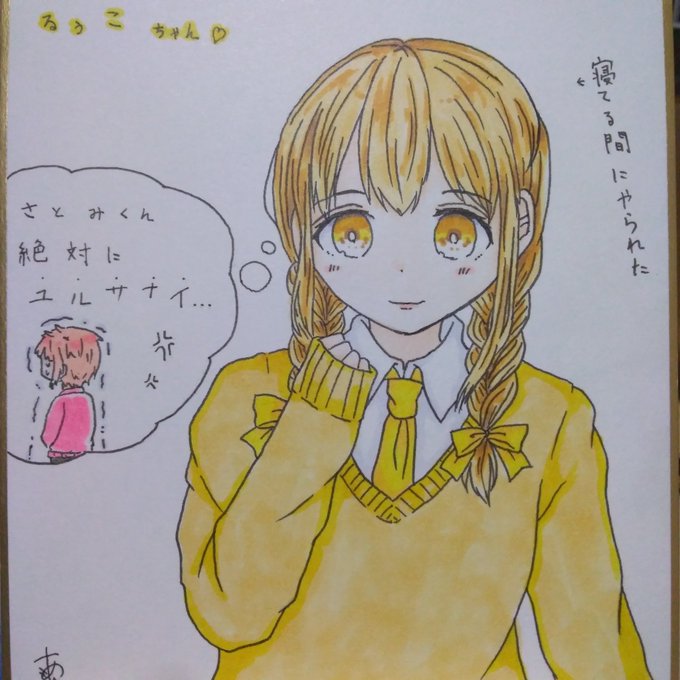 るぅこちゃん♡
←寝てる間にやられた
さとみくん
絶対に
ユルサナイ...
あ